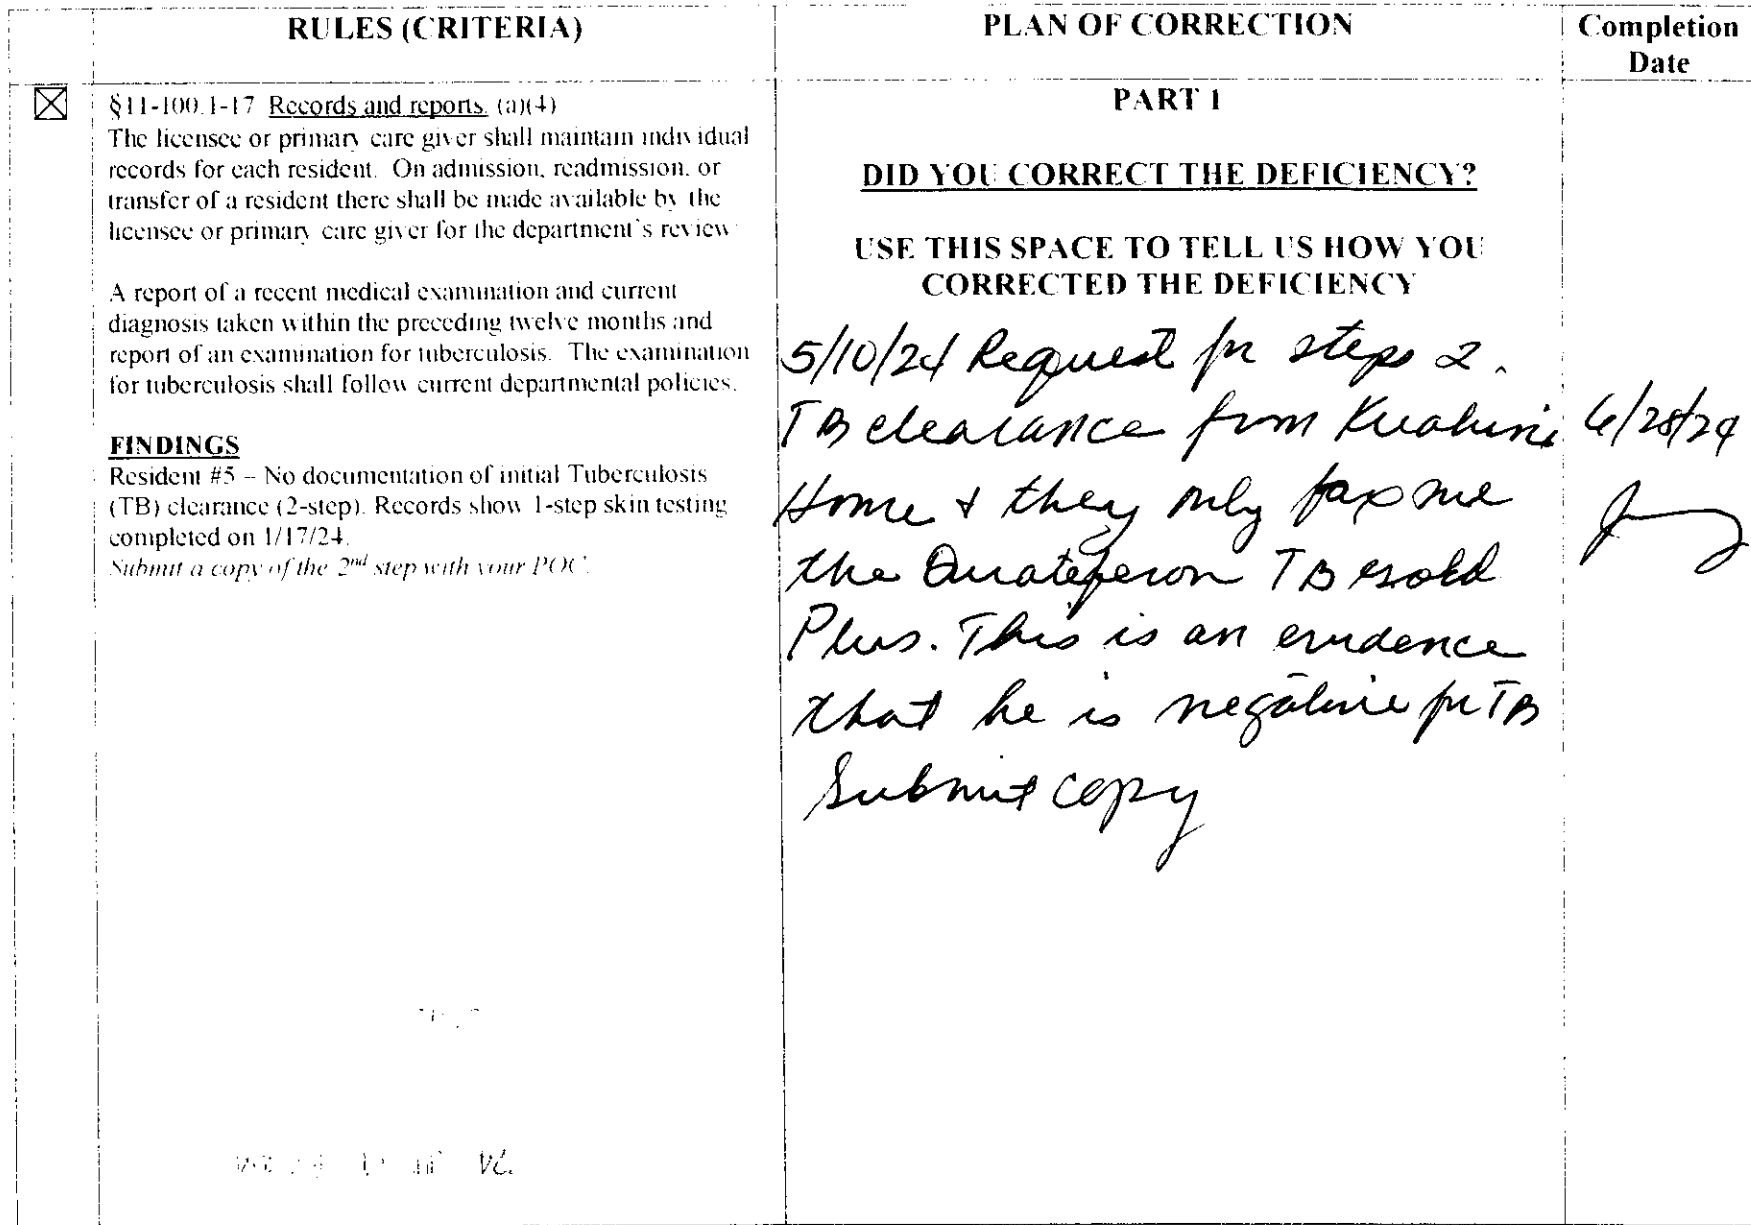 RULES (CRITERIA)
PLAN OF CORRECTION
Completion
Date
§11-100.1-17 Records and reports. (a)(4)
The licensee or primary care giver shall maintain individual
records for each resident. On admission, readmission, or
transfer of a resident there shall be made available by the
licensee or primary care giver for the department's review
A report of a recent medical examination and current
diagnosis taken within the preceding twelve months and
report of an examination for tuberculosis. The examination
for tuberculosis shall follow current departmental policies.
FINDINGS
Resident #5 – No documentation of initial Tuberculosis
(TB) clearance (2-step). Records show 1-step skin testing
completed on 1/17/24.
Submit a copy of the 2nd step with your POC.
PART 1
DID YOU CORRECT THE DEFICIENCY?
USE THIS SPACE TO TELL US HOW YOU
CORRECTED THE DEFICIENCY
5/10/24 Request for steps 2.
TB clearance from
Home + they only fax me
the TB
Plus. This is an evidence
that he is negative for TB
Submit copy
6/28/24